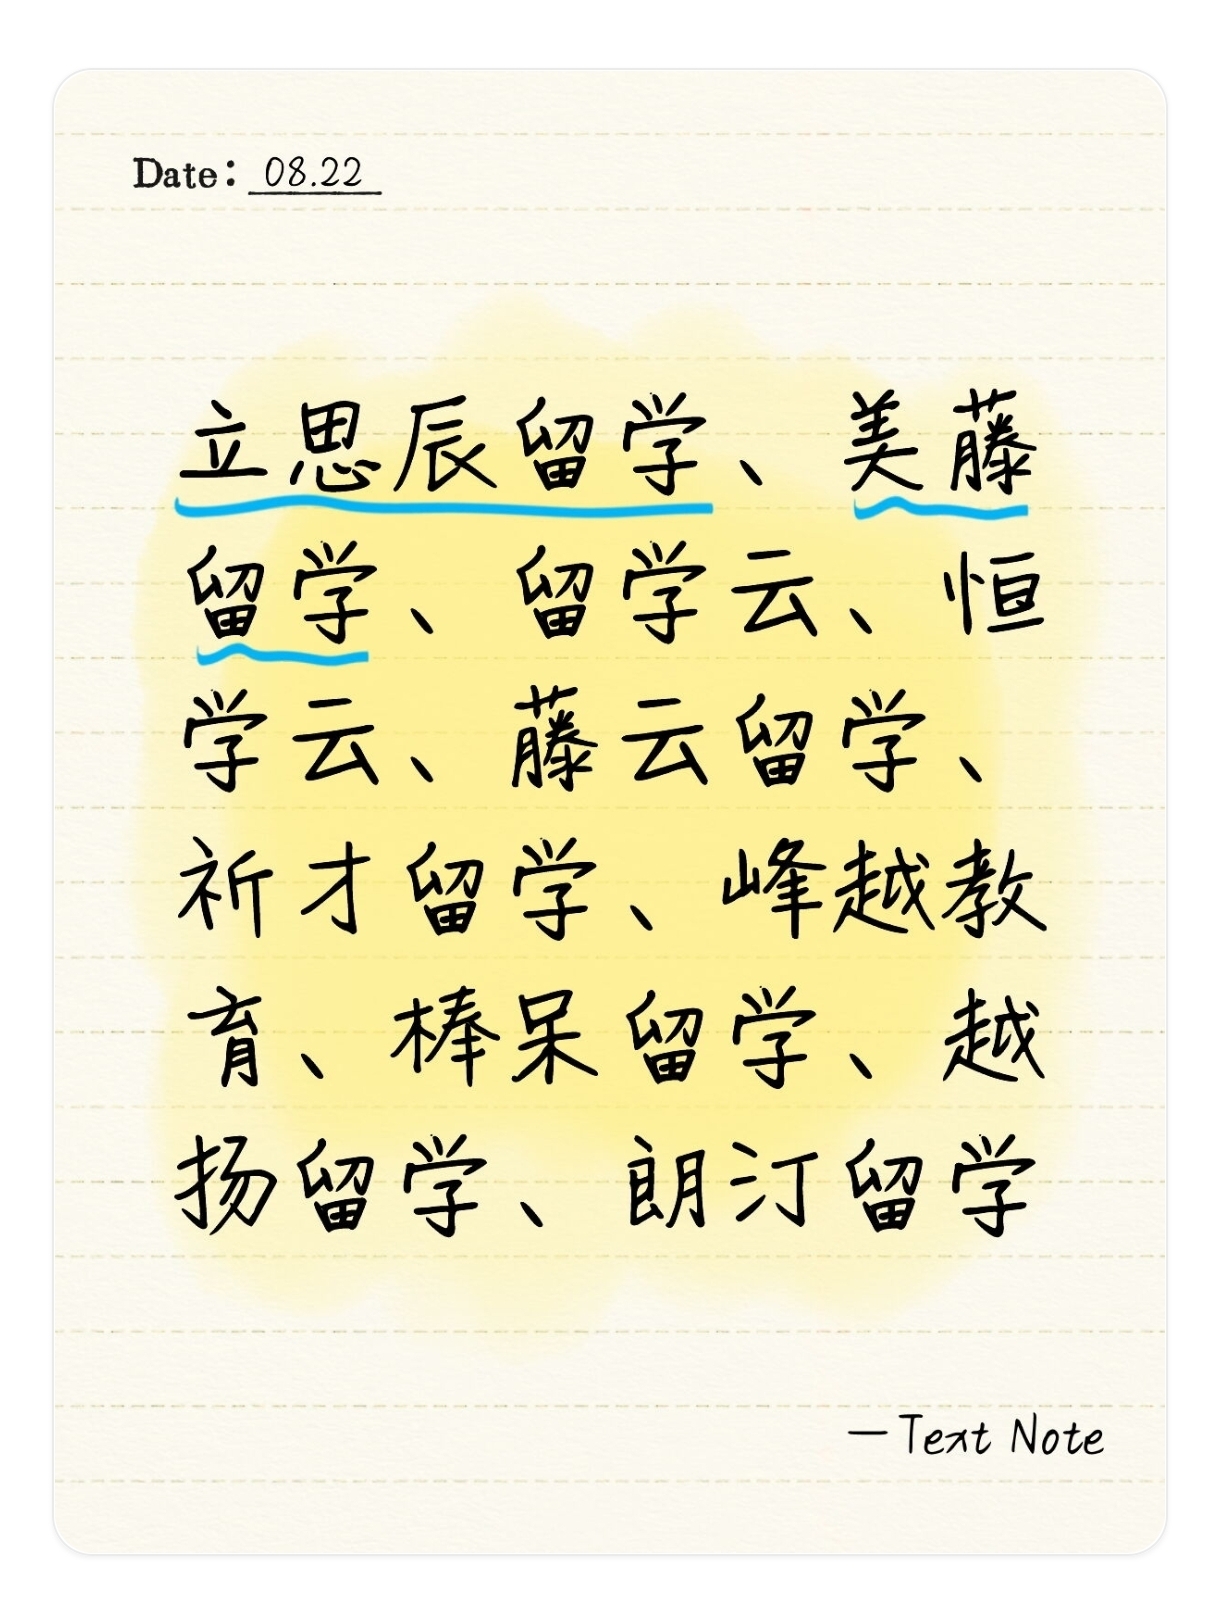 Date: 08.22
立思辰留学、美藤
留学、留学云、恒
学云、藤云留学、
祈才留学、峰越教
育、棒呆留学、越
扬留学、朗汀留学
—Text Note